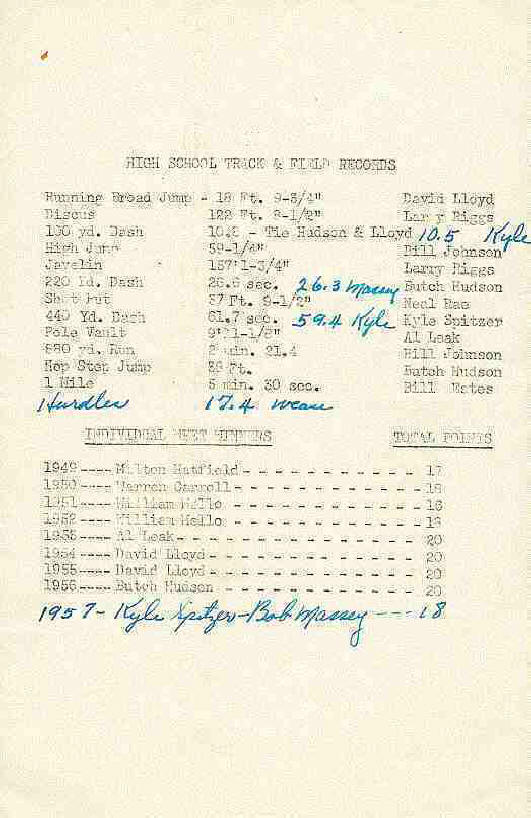 HIGH SCHOOL TRACK & FIELD RECORDS
Running Broad Jump - 18 Ft. 9-3/4" David Lloyd
Discus 122 Ft. 8-1/2" Larry Riggs
100 yd. Dash - Tie Hudson & Lloyd 10.5 Kyle
High Jump 59-1/4" Bill Johnson
Javelin 157'1-3/4" Larry Riggs
220 Yd. Dash 26.3 Massey Butch Hudson
Shot Put 37 Ft. 9-1/2" Neal
440 Yd. Dash 61.7 sec. 59.4 Kyle Kyle Spitzer
Pole Vault 9'1-1/2" Al Leak
880 yd. Run 2 min. 21.4 Bill Johnson
Hop Step Jump Ft. Butch Hudson
1 Mile 5 min. 30 sec. Bill
Hurdles 17.4
INDIVIDUAL MEET WINNERS TOTAL POINTS
1949----Milton Hatfield- - - - - - - - - - - - - 17
1950----Warren Carroll- - - - - - - - - - - - - - 18
1951----William - - - - - - - - - - - - - - 16
1952----William - - - - - - - - - - - - - -
1953----Al Leak- - - - - - - - - - - - - - - - - 20
1954----David Lloyd- - - - - - - - - - - - - - - 20
1955----David Lloyd- - - - - - - - - - - - - - - 20
1956----Butch Hudson - - - - - - - - - - - - - - 20
1957- Kyle Spitzer-Bob Massey ----18